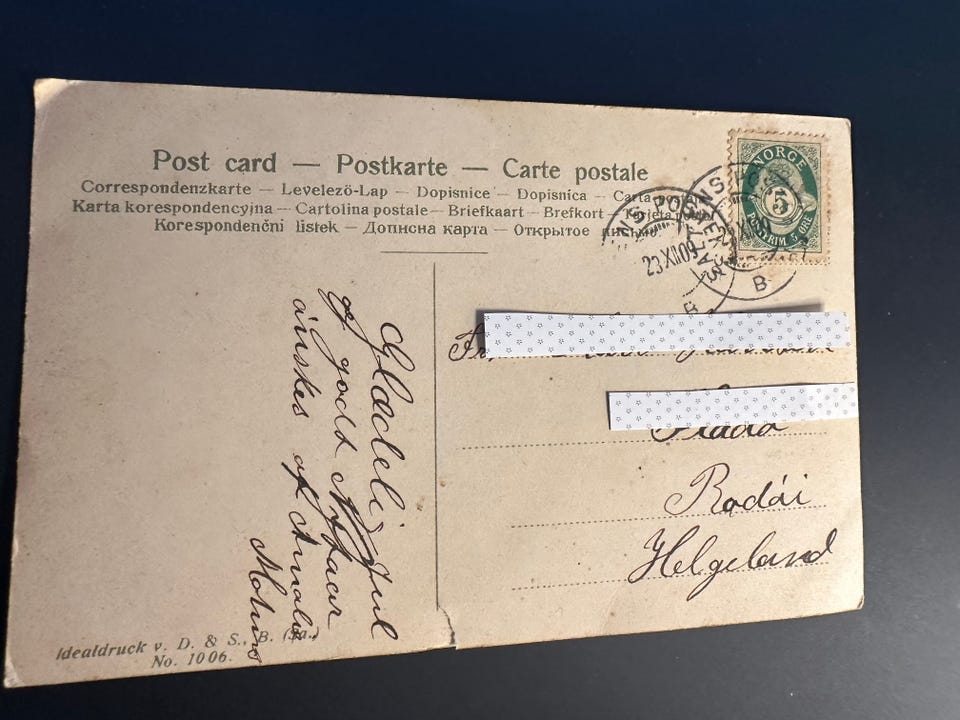 Post card — Postkarte — Carte postale
Correspondenzkarte — Levelező-Lap — Dopisnice — Dopisnica — Carta
Karta korespondencyjna — Cartolina postale — Briefkaart — Brefkort — Tarjeta postal
Korespondenční lístek — Дописна карта — Открытое письмо
NORGE
5
POSTFRIM 5 ØRE
23 XII 09
B
Glædelig Jul
og godt Nytaar
ønskes af Amalie
Rødøi
Helgeland
Idealdruck v. D. & S., B. (Sa.)
No. 1006.